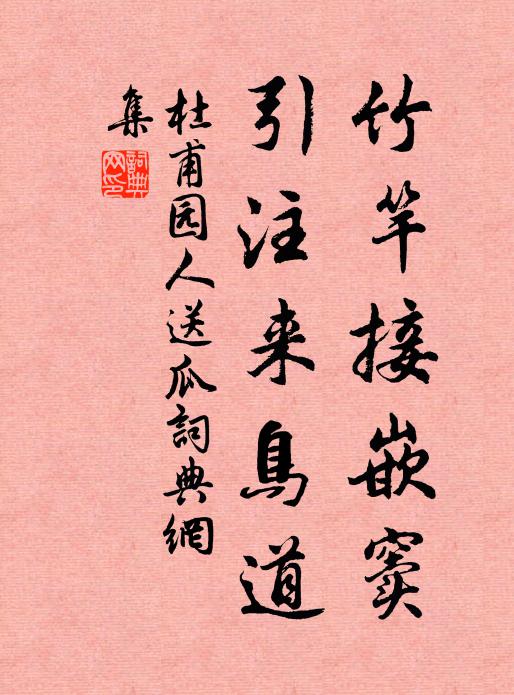 竹竿接嵌窦
引注来鳥道
杜甫园人送瓜詞典網
集
詞典网印